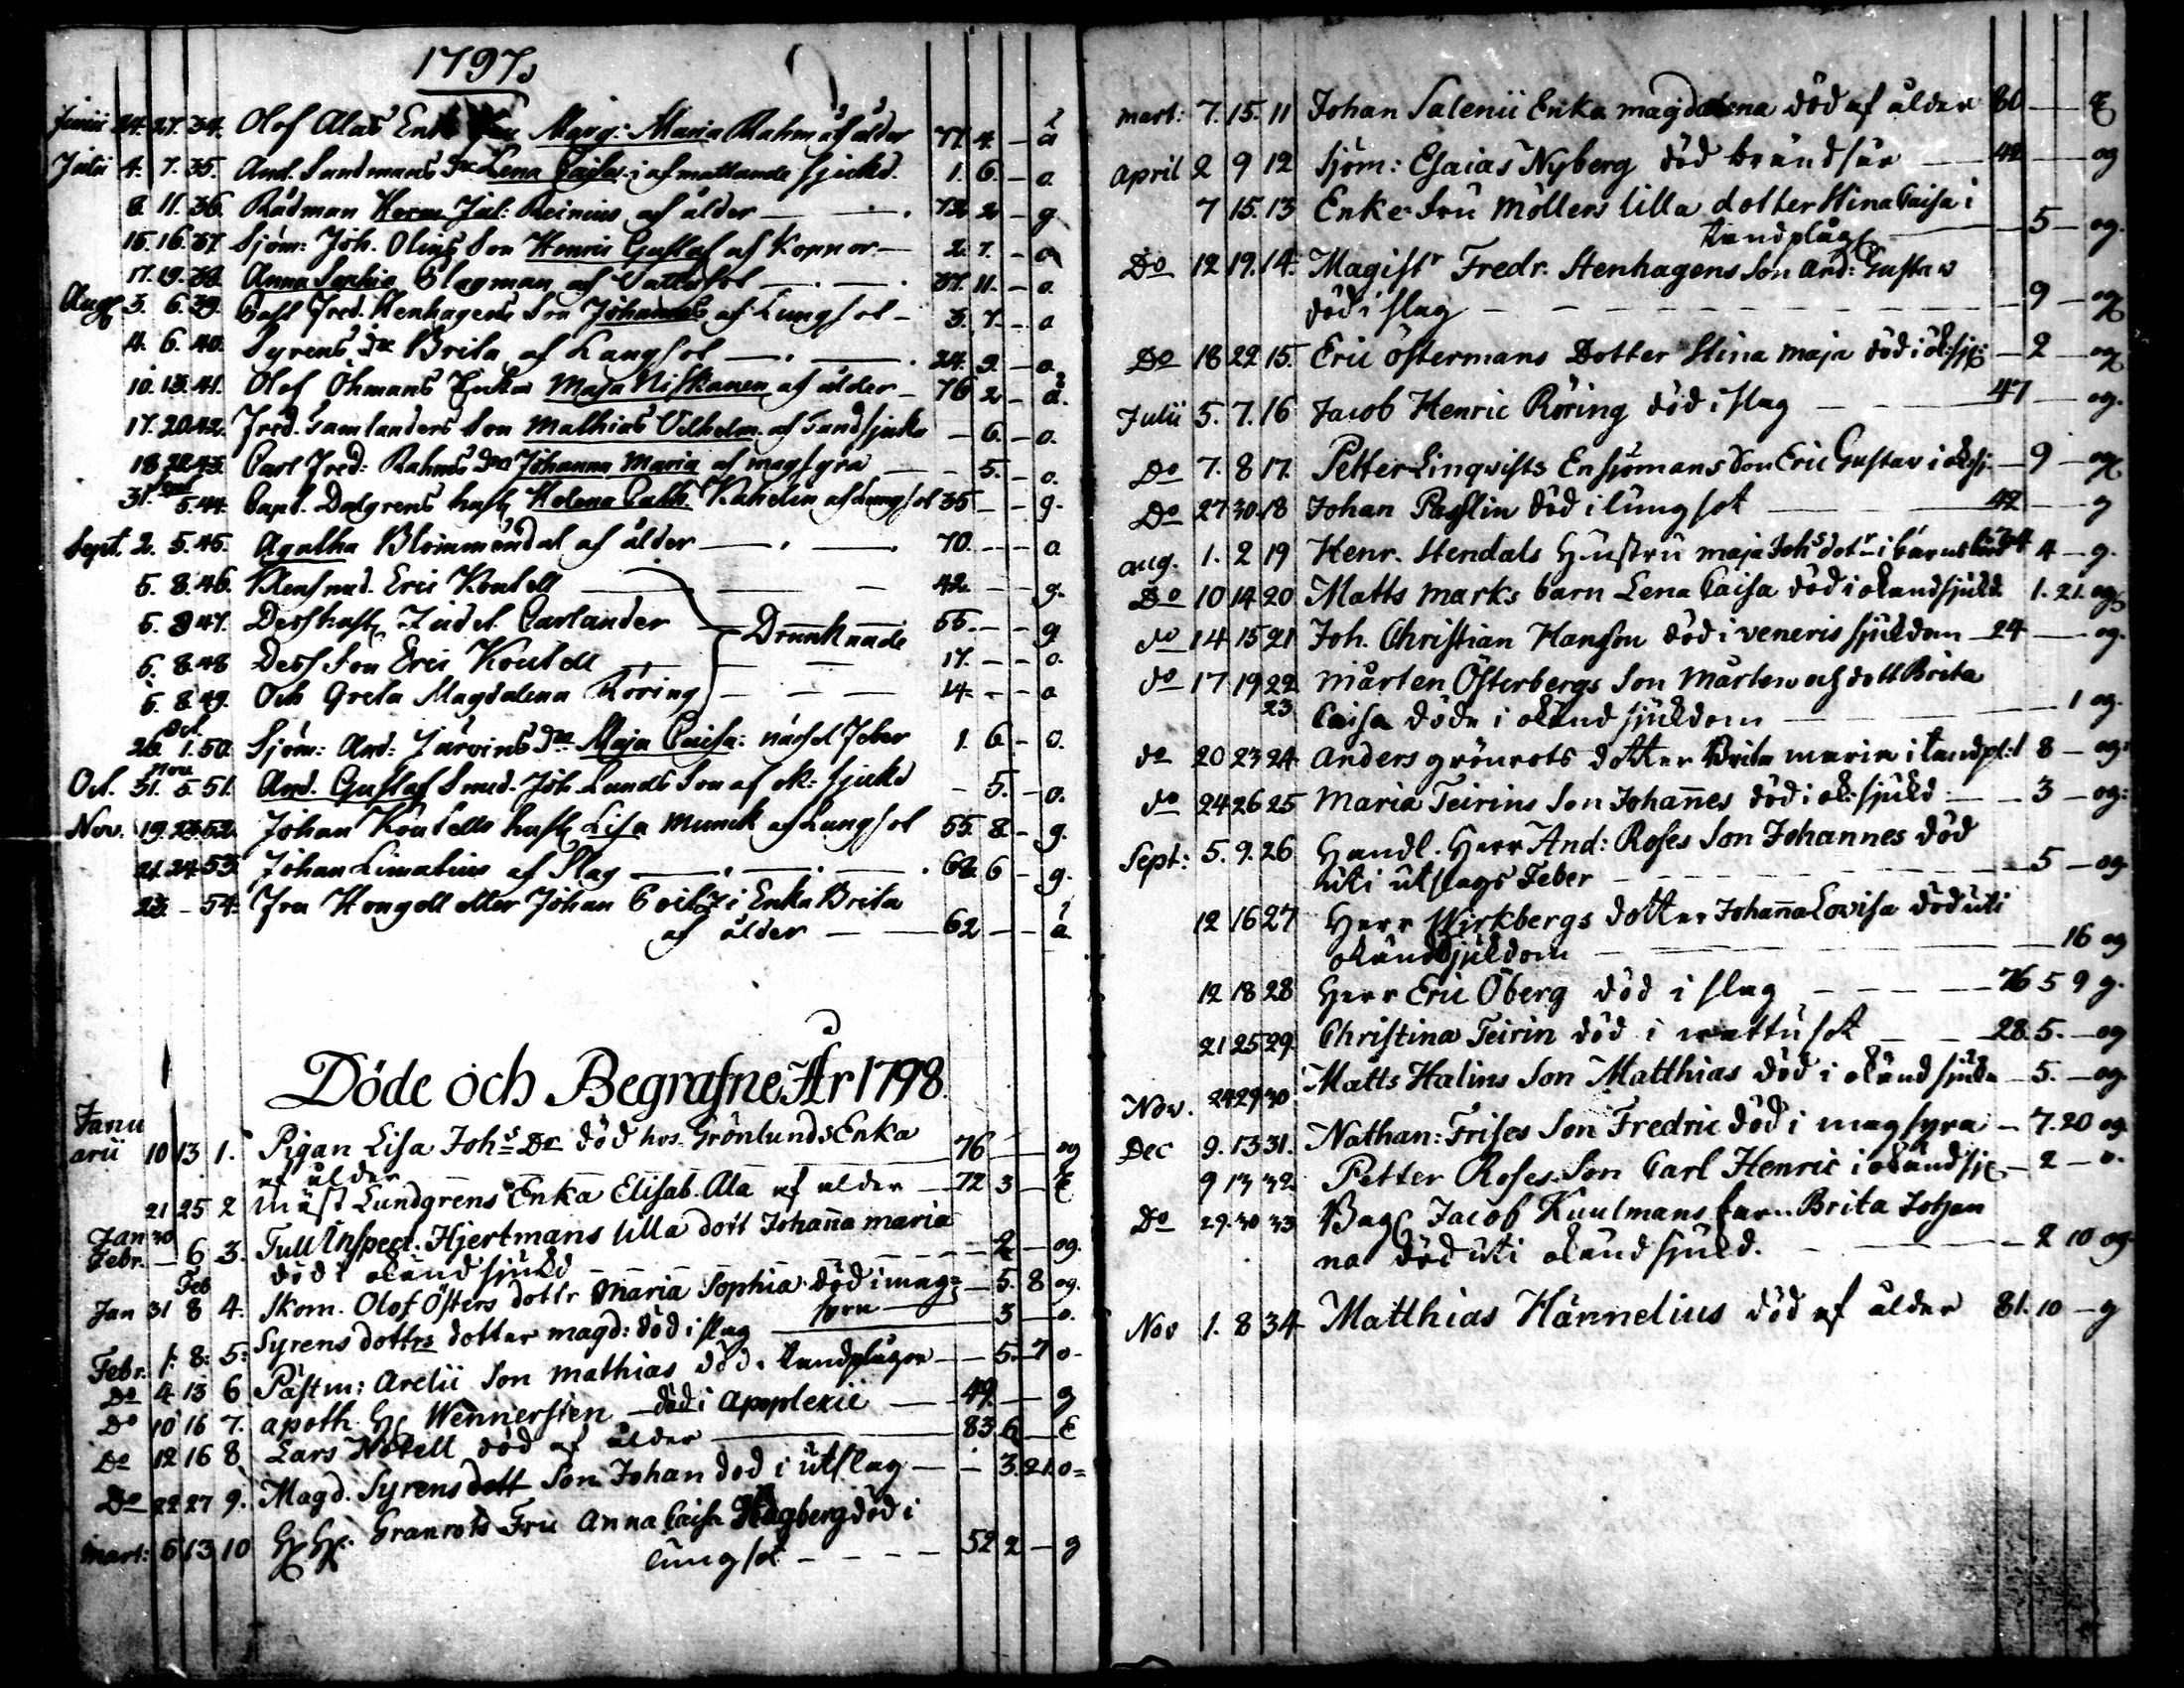 1797
Junii 24. 27. 34. Olof Alas Enk Marg: Maria Rahm af ålder 77. 4. - a
Julii 4. 7. 35. And. Sundmans Dr Lena Caisa i afmattande sjukd. 1. 6. - o.
8. 11. 36. Rådman Herm Jul: Reinius af ålder 72. 2 - g
15. 16. 37. Sjöm: Joh. Olius Son Henric Gustaf af Koppor 2. 7. - o
17. 19. 38. Anna Sophia Slagman af Vattusot 37. 11. - o.
Aug 3. 6. 39. Fred. Stenhagens Son Johannes af Lungsot 3. 7. - o
4. 6. 40. Syrens Dr Brita af Lungsot 24. 9. - o.
10. 13. 41. Olof Öhmans Enka Maja Niskanen af ålder 76 2 - a.
17. 20. 42. Fred. Samlanders Son Mathias Vilhelm. af Tandsjuka - 6. - o.
18. 22. 43. Carl Fred: Rahms Dr Johanna Maria af magsyra - 5. - o.
31. Sept 5. 44. Capt. Dalgrens hust Helena Cath. Kahelin af Lungsot 35 - - g.
Sept. 2. 5. 45. Agatha Blommendal af ålder 70. - - o
5. 8. 46. Klensmed. Eric Koutell 42. - g.
5. 8 47. Dess hust Judet Carlander Drunknade 55. - - g
5. 8. 48 Dess Son Eric Koutell 17. - - o.
5. 8. 49. Och Greta Magdalena Röring 14. - - o
26. Oct. 1. 50. Sjöm: And: Järvins Dr Maja Caisa: nässel feber 1. 6 - o.
Oct. 31. Nov. 5. 51. And. Gustaf Smed. Joh. Lunds Son af ok: sjukd - 5. - o.
Nov. 19. 23. 52. Johan Koutells hust Lisa Munck af Lungsot 55. 8. - g.
21. 24. 53. Johan Limatius af Slag 62. 6 - g.
23. - 54. Ira Hongell eller Johan Enka Brita
af ålder 62 - - a
Döde och Begrafne År 1798.
Janu
arii 10 13 1. Pigan Lisa Johs Dr död hos Grönlunds Enka
af ålder 76 og
21 25 2 mäst Lundgrens Enka Elisab. Ala af ålder 72 3 - E
Jan 30
Febr. - 6 3. Tull Inspect. Hjertmans lilla dott Johanna maria
död i okänd sjukd 2 - og.
Jan 31 Feb 8 4. Skom. Olof Östers dottr Maria Sophia död i mag=
syra 5. 8 og.
Febr. 1. 8: 5: Syrens dotters dotter magd: död i slag 3 - o.
Do 4 13 6 Pastm: Arelii Son mathias död i tandplågor 5. 7 o -
Do 10 16 7. apoth. Hr Wennersten död i Apoplexie 49. - g
Do 12 16 8 Lars Notell död af ålder 83 6 - E
Do 22 27 9. Magd. Syrens dott Son Johan död i utslag - 3. 21. o =
mart: 6 13 10 Granrots Fru Anna Caisa Hagberg död i
lungsot 52 2 - g
mart: 7. 15. 11 Johan Salenii Enka magdalena död af ålder 80 - E
April 2 9 12 Sjöm: Esaias Nyberg död brändsår 42 - og
7 15. 13 Enke-fru Möllers lilla dotter Stina Caisa i
tandplåg 5 - og.
Do 12 19. 14. Magistr Fredr. Stenhagens Son And: Gustav
död i slag 9 - og
Do 18 22 15. Eric Östermans Dotter Stina maja död i ok: sj: 2 - og
Julii 5. 7. 16 Jacob Henric Röring död i slag 47 - og.
Do 7. 8 17. Petter Linqvists En sjömans Son Eric Gustav i ok sj. 9 - og
Do 27 30. 18 Johan Paslin död i lungsot 42 - g
aug. 1. 2 19 Henr. Stendals Hustru maja Johs dotr i barnsbörd 34 4 - g.
Do 10 14 20 Matts marks barn Lena Caisa död i okändsjukd. 1. 21. og
do 14 15 21 Joh. Christian Hanson död i veneris sjukdom 24 - og.
do 17 19 22 mårten Österbergs Son Mårten och dott Brita
23. Caisa döde i okänd sjukdom 1 og.
do 20 23 24. anders grönrots dotter Brita maria i tandpl: 1 8 - og:
do 24 26 25 Maria Teirins Son Johannes död i ok: sjukd. 3 - og:
Sept: 5. 9. 26 Handl. Herr And: Roses Son Johannes död
uti utslags feber 5 - og
12 16 27 Herr Wirkbergs dotter Johanna Lovisa död uti
okänd sjukdom 16 og
12 18 28 Herr Eric Öberg död i slag 76 5 9 g.
21 25 29. Christina Teirin död i wattusot 28. 5. - og
Nov. 24 29 30 Matts Halins Son Matthias död i okänd sjukd. 5. - og.
Dec 9. 13 31. Nathan: Frises Son Fredric död i magsyra 7. 20 og.
9 13 32. Petter Roses Son Carl Henric i okänd sj 2 - o.
Do 29. 30 33 Bag Jacob Kuulmans barn Brita Johan
na död uti okänd sjukd. 2 10 og.
Nov 1. 8 34 Matthias Hännelius död af ålder 81. 10 - g